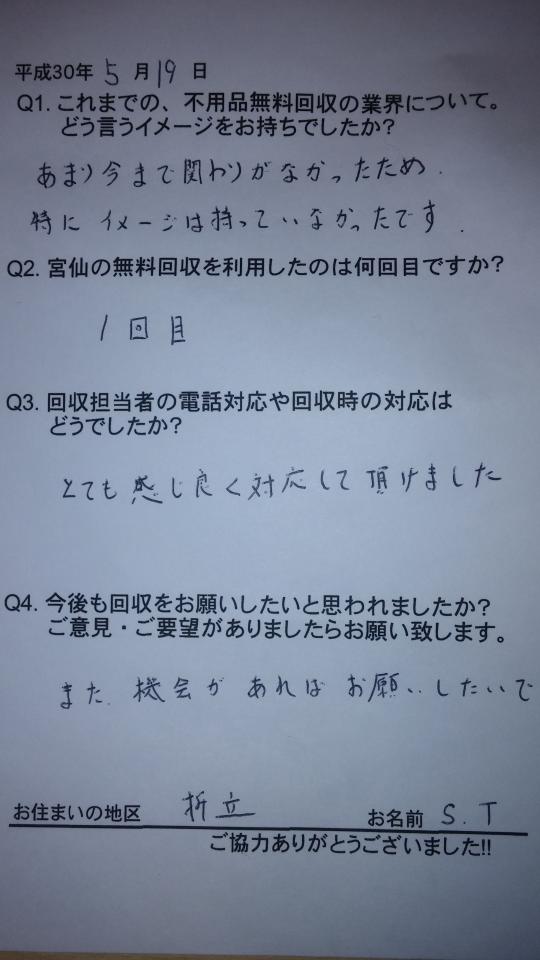 平成30年 5 月 19 日
Q1. これまでの、不用品無料回収の業界について。
どう言うイメージをお持ちでしたか?
あまり今まで関わりがなかったため.
特に イメージは持っていなかったです.
Q2. 宮仙の無料回収を利用したのは何回目ですか?
1回目
Q3. 回収担当者の電話対応や回収時の対応は
どうでしたか?
とても感じ良く対応して頂けました
Q4. 今後も回収をお願いしたいと思われましたか?
ご意見・ご要望がありましたらお願い致します。
また. 機会が あれば お願いしたいで
お住まいの地区 折立 お名前 S.T
ご協力ありがとうございました!!